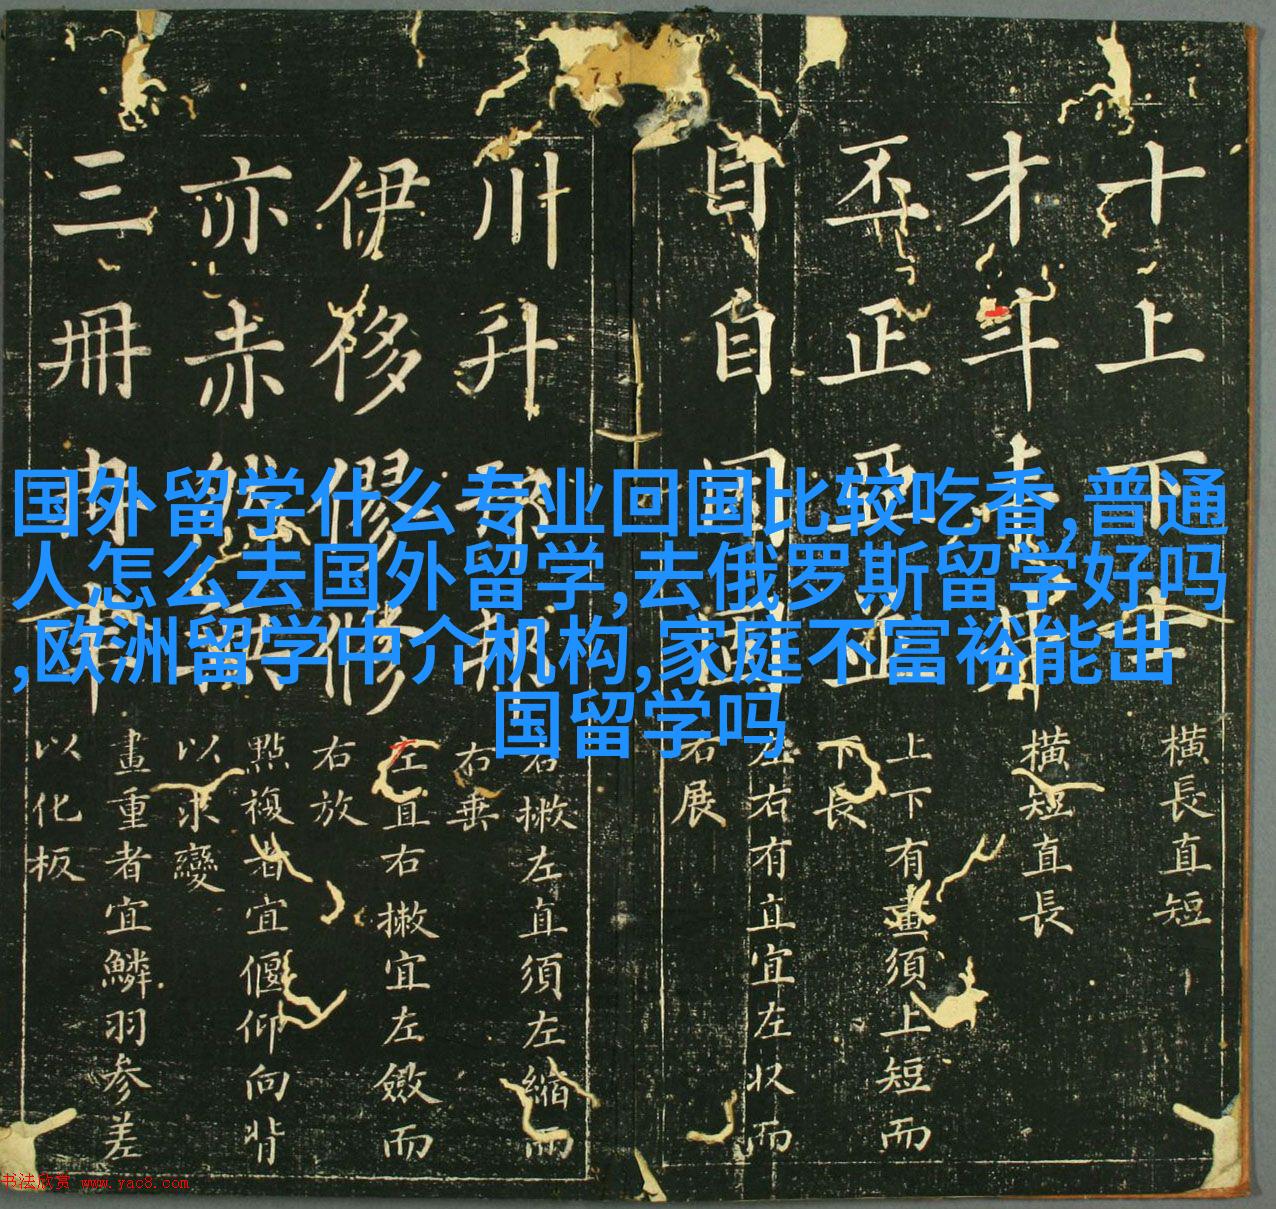 国外留学什么专业回国比较吃香,普通
人怎么去国外留学,去俄罗斯留学好吗
,欧洲留学中介机构,家庭不富裕能出
国留学吗
十上下
横長直短
才斗
横短直長
丕正
上下有畫須上短而
下長
目自
左右有直宜左收而
右展
川升
右撇左直須左縮而
右垂
伊侈僇修
左直右撇宜左斂而
右放
亦赤
點複者宜偃仰向背
以求變
三冊
畫重者宜鱗羽参差
以化板
书法欣赏 www.yac8.com